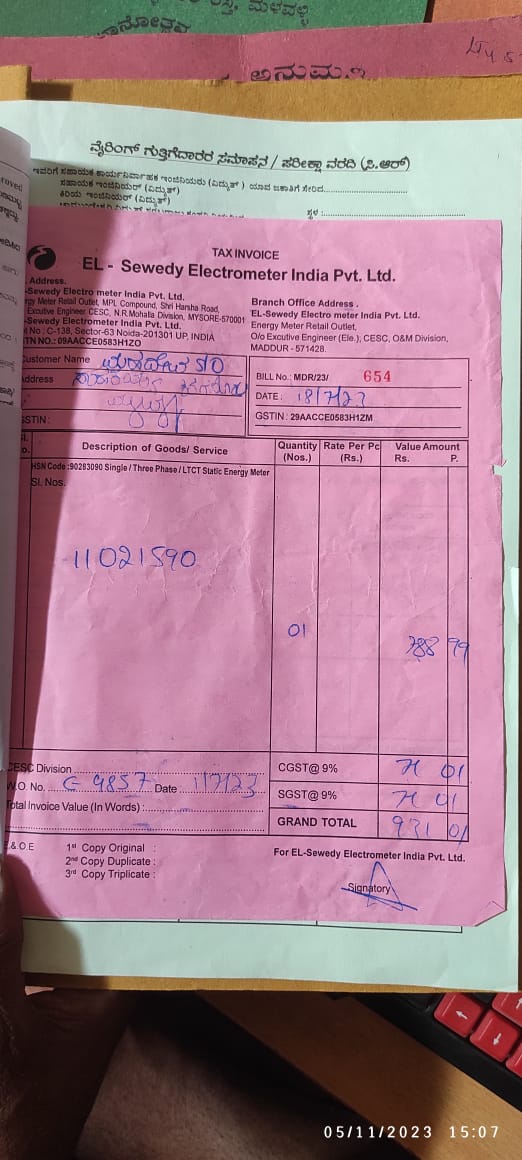 ಅನುಮತಿ
ವೈರಿಂಗ್ ಗುತ್ತಿಗೆದಾರರ ಸಮಾಪನ / ಪರೀಕ್ಷಾ ವರದಿ (ಸಿ.ಆರ್)
ಇವರಿಗೆ ಸಹಾಯಕ ಕಾರ್ಯನಿರ್ವಾಹಕ ಇಂಜಿನಿಯರು (ವಿದ್ಯುತ್) ಯಾವ ಜಕಾತಿಗೆ ಸೇರಿದ
ಸಹಾಯಕ ಇಂಜಿನಿಯರ್ (ವಿದ್ಯುತ್)
ಕಿರಿಯ ಇಂಜಿನಿಯರ್ (ವಿದ್ಯುತ್)
ಸ್ಥಳ :
TAX INVOICE
EL - Sewedy Electrometer India Pvt. Ltd.
Address.
-Sewedy Electro meter India Pvt. Ltd.
gy Meter Retail Outlet, MPL Compound, Shri Harsha Road,
Excutive Engineer CESC, N.R.Mohalla Division, MYSORE-570001
-Sewedy Electrometer Pvt. Ltd.
No : C-138, Sector-63 Noida-201301 UP, INDIA
TN NO.: 09AACCE0583H1ZO
Branch Office Address .
EL-Sewedy Electro meter India Pvt. Ltd.
Energy Meter Retail Outlet,
O/o Excutive Engineer (Ele.), CESC, O&M Division,
MADDUR - 571428.
Customer Name S/O
Address
GSTIN :
BILL No.: MDR/23/ 654
DATE : 18/7/23
GSTIN: 29AACCE0583H1ZM
Description of Goods/ Service
Quantity (Nos.)
Rate Per Pc (Rs.)
Value Amount Rs. P.
HSN Code :90283090 Single / Three Phase / LTCT Static Energy Meter
Sl. Nos.
11021590
01 788 99
CESC Division
W.O. No. 9857 Date 1/7/23
Total Invoice Value (In Words) :
CGST@ 9% 71 01
SGST@ 9% 71 01
GRAND TOTAL 931 01
E.& O E
1st Copy Original :
2nd Copy Duplicate :
3rd Copy Triplicate :
For EL-Sewedy Electrometer India Pvt. Ltd.
Signatory
05/11/2023 15:07